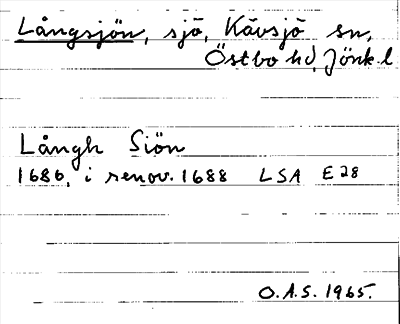 Långsjön, sjö, Kävsjö sn,
Östbo hd, Jönk. l
Långh Siön
1686, i renov. 1688 LSA E28
O.A.S. 1965.